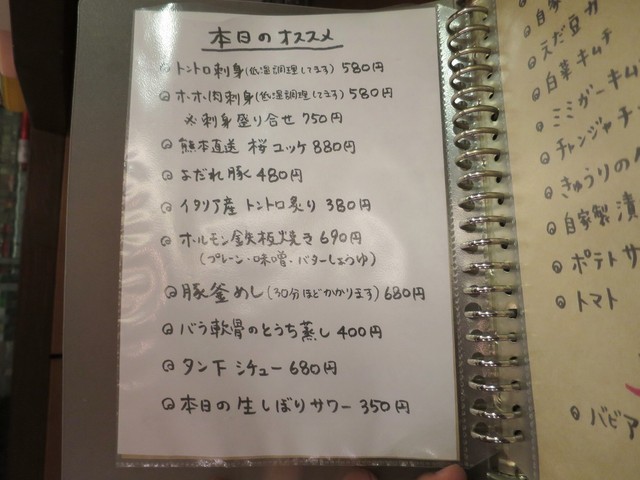 本日のオススメ
トントロ刺身(低温調理してます) 580円
ホホ肉刺身(低温調理してます) 580円
※刺身盛り合せ 750円
熊本直送 桜ユッケ 880円
よだれ豚く 480円
イタリア産 トントロ炙り 380円
ホルモン鉄板焼き 690円
(プレーン・味噌・バターしょうゆ)
豚釜めし(30分ほどかかります) 680円
バラ軟骨のとうち蒸し 400円
タン下シチュー 680円
本日の生しぼりサワー 350円
自家
えだ豆ガ
白菜キムチ
ミミガーキム
チャンジャチ
きゅうりの
自家製漬
ポテトサ
トマト
バビア